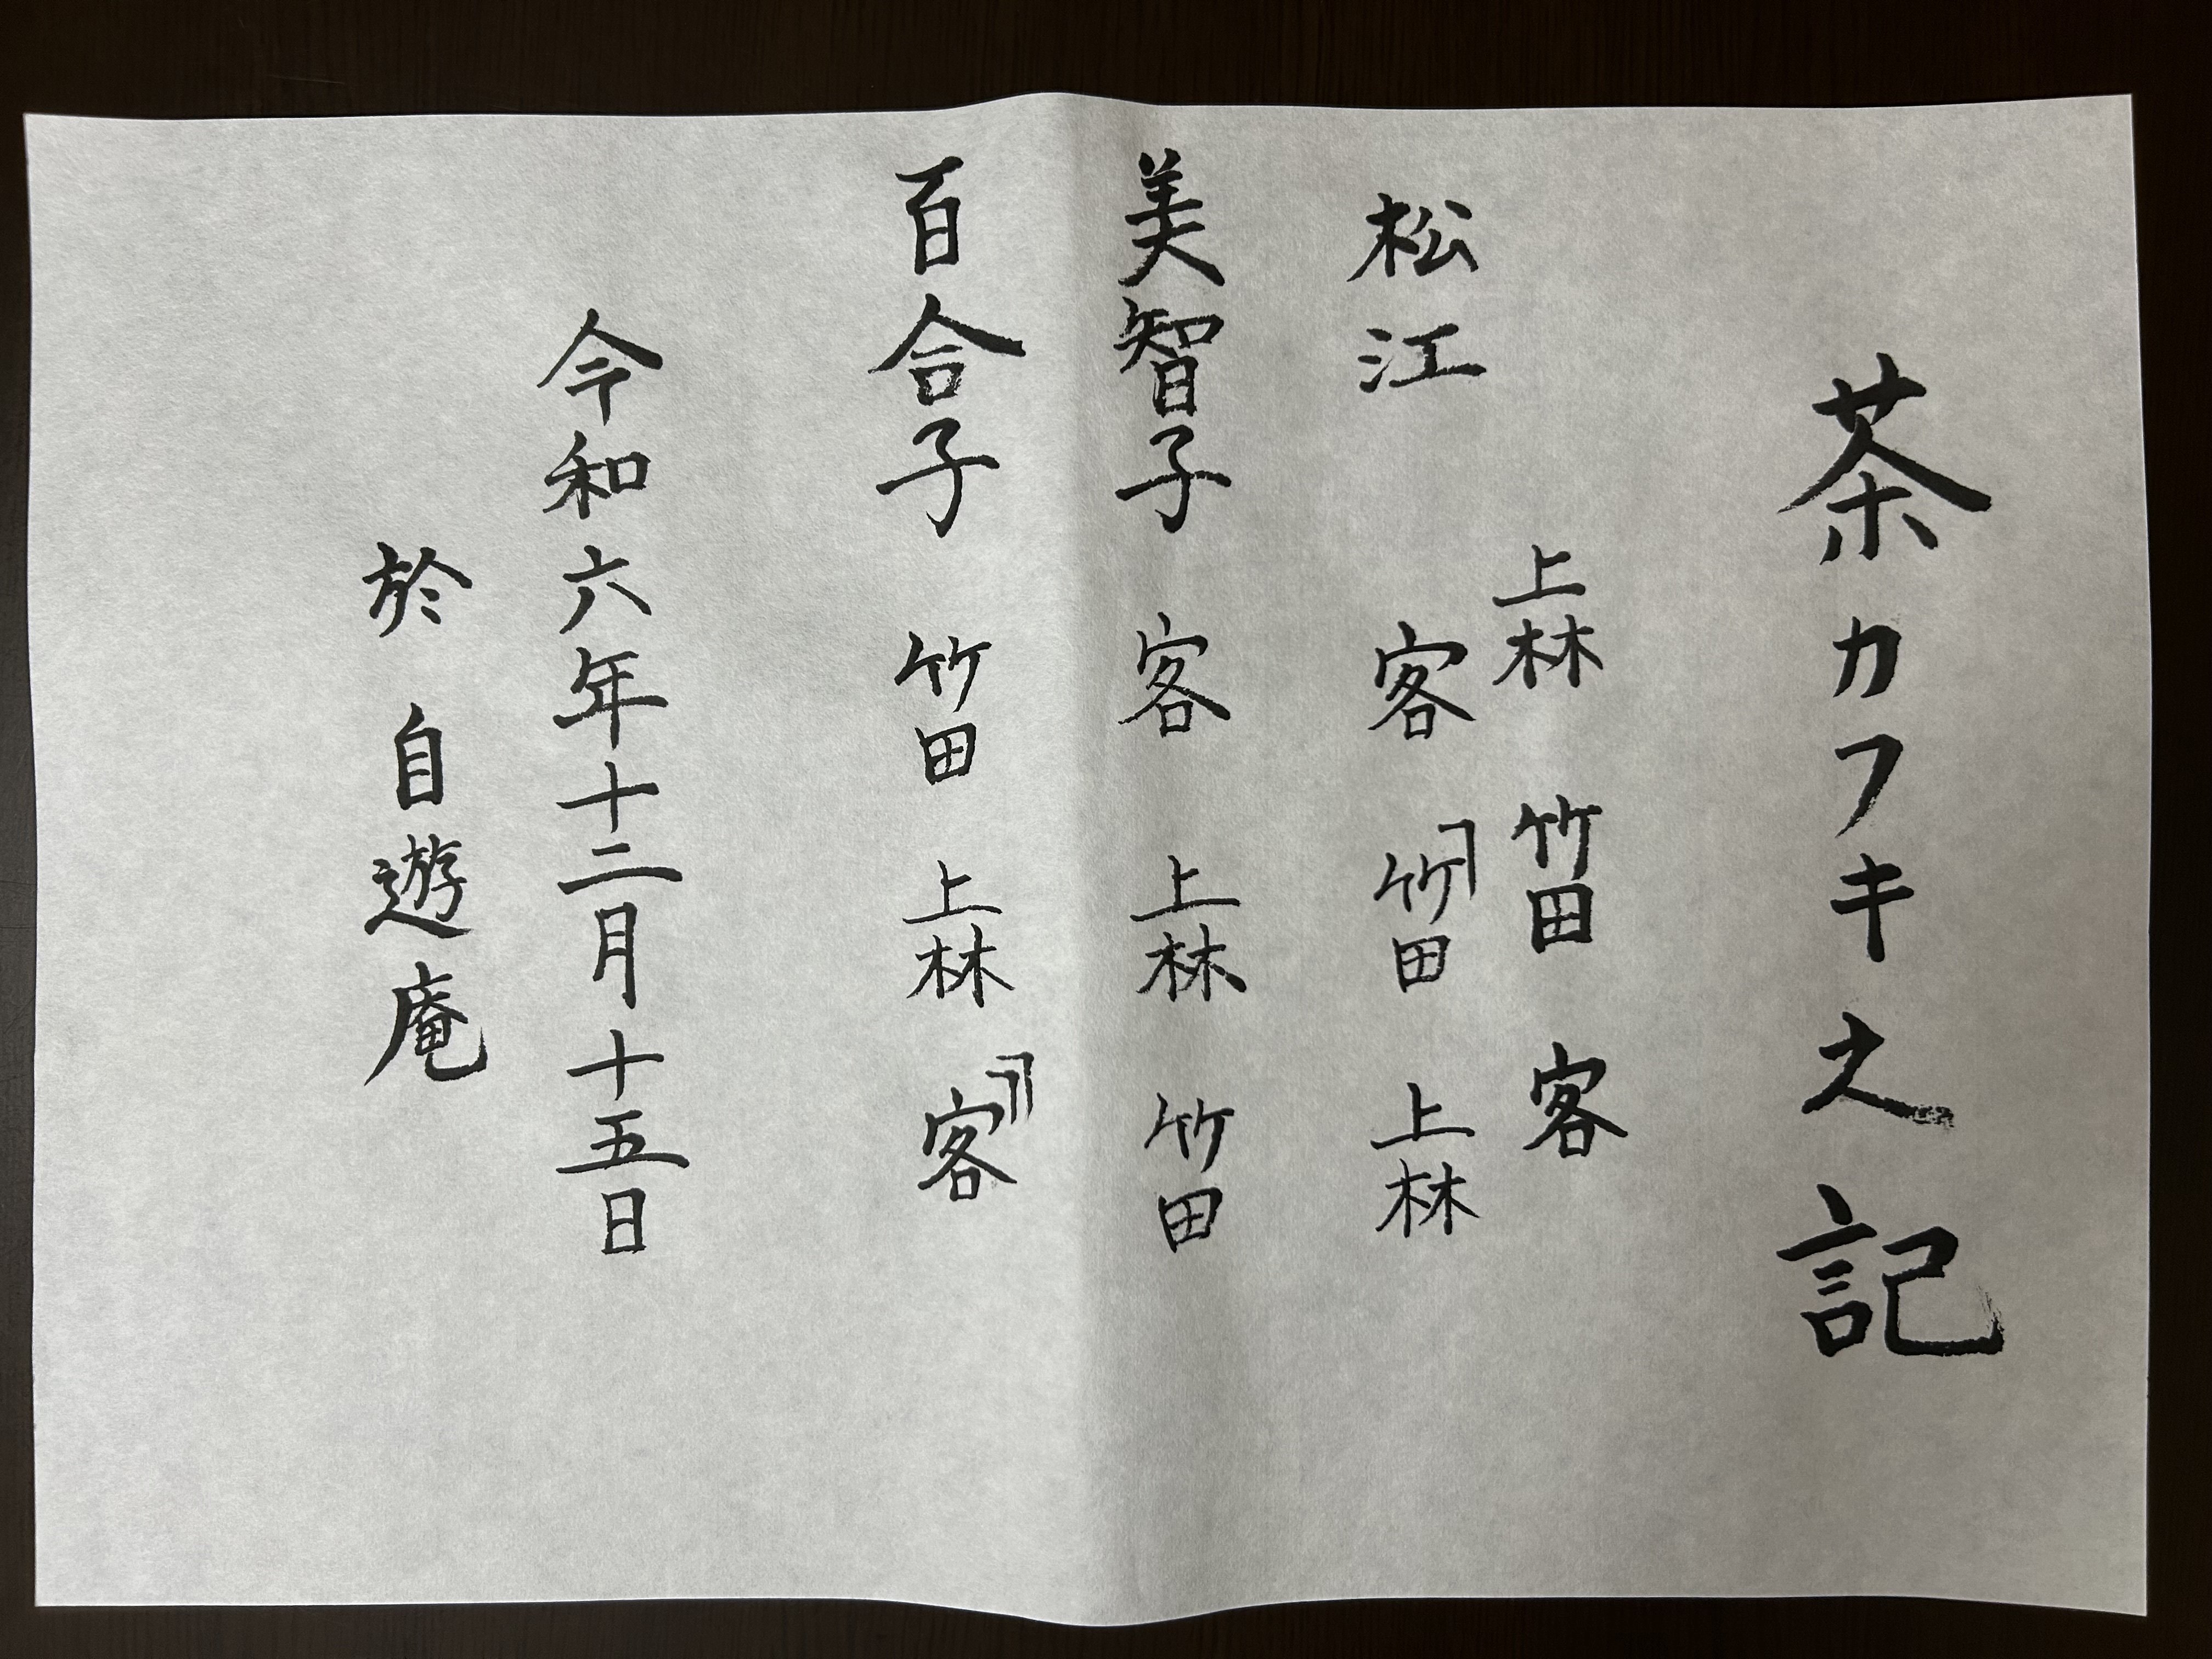 茶カフキ之記
上林 竹田 客
松江 客 竹田 上林
美智子 客 上林 竹田
百合子 竹田 上林 客
令和六年十二月十五日
於 自遊庵